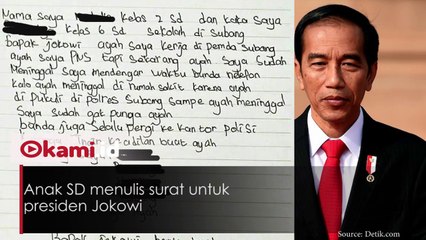 Nama saya kelas 2 sd dan kaka saya
kelas 6 sd sekolah di subang
bapak jokowi ayah saya kerja di pemda subang
ayah saya PNS tapi sekarang ayah saya sudah
Meninggal saya mendengar waktu bunda nlelfon
kalo ayah meninggal di rumah sakit karena ayah
di pukuli di polres subang sampe ayah meninggal
saya sudah gak punya ayah
bunda juga selalu pergi ke kantor polisi
ingin keadilan buat ayah
Okami
Anak SD menulis surat untuk
presiden Jokowi
Source: Detik.com